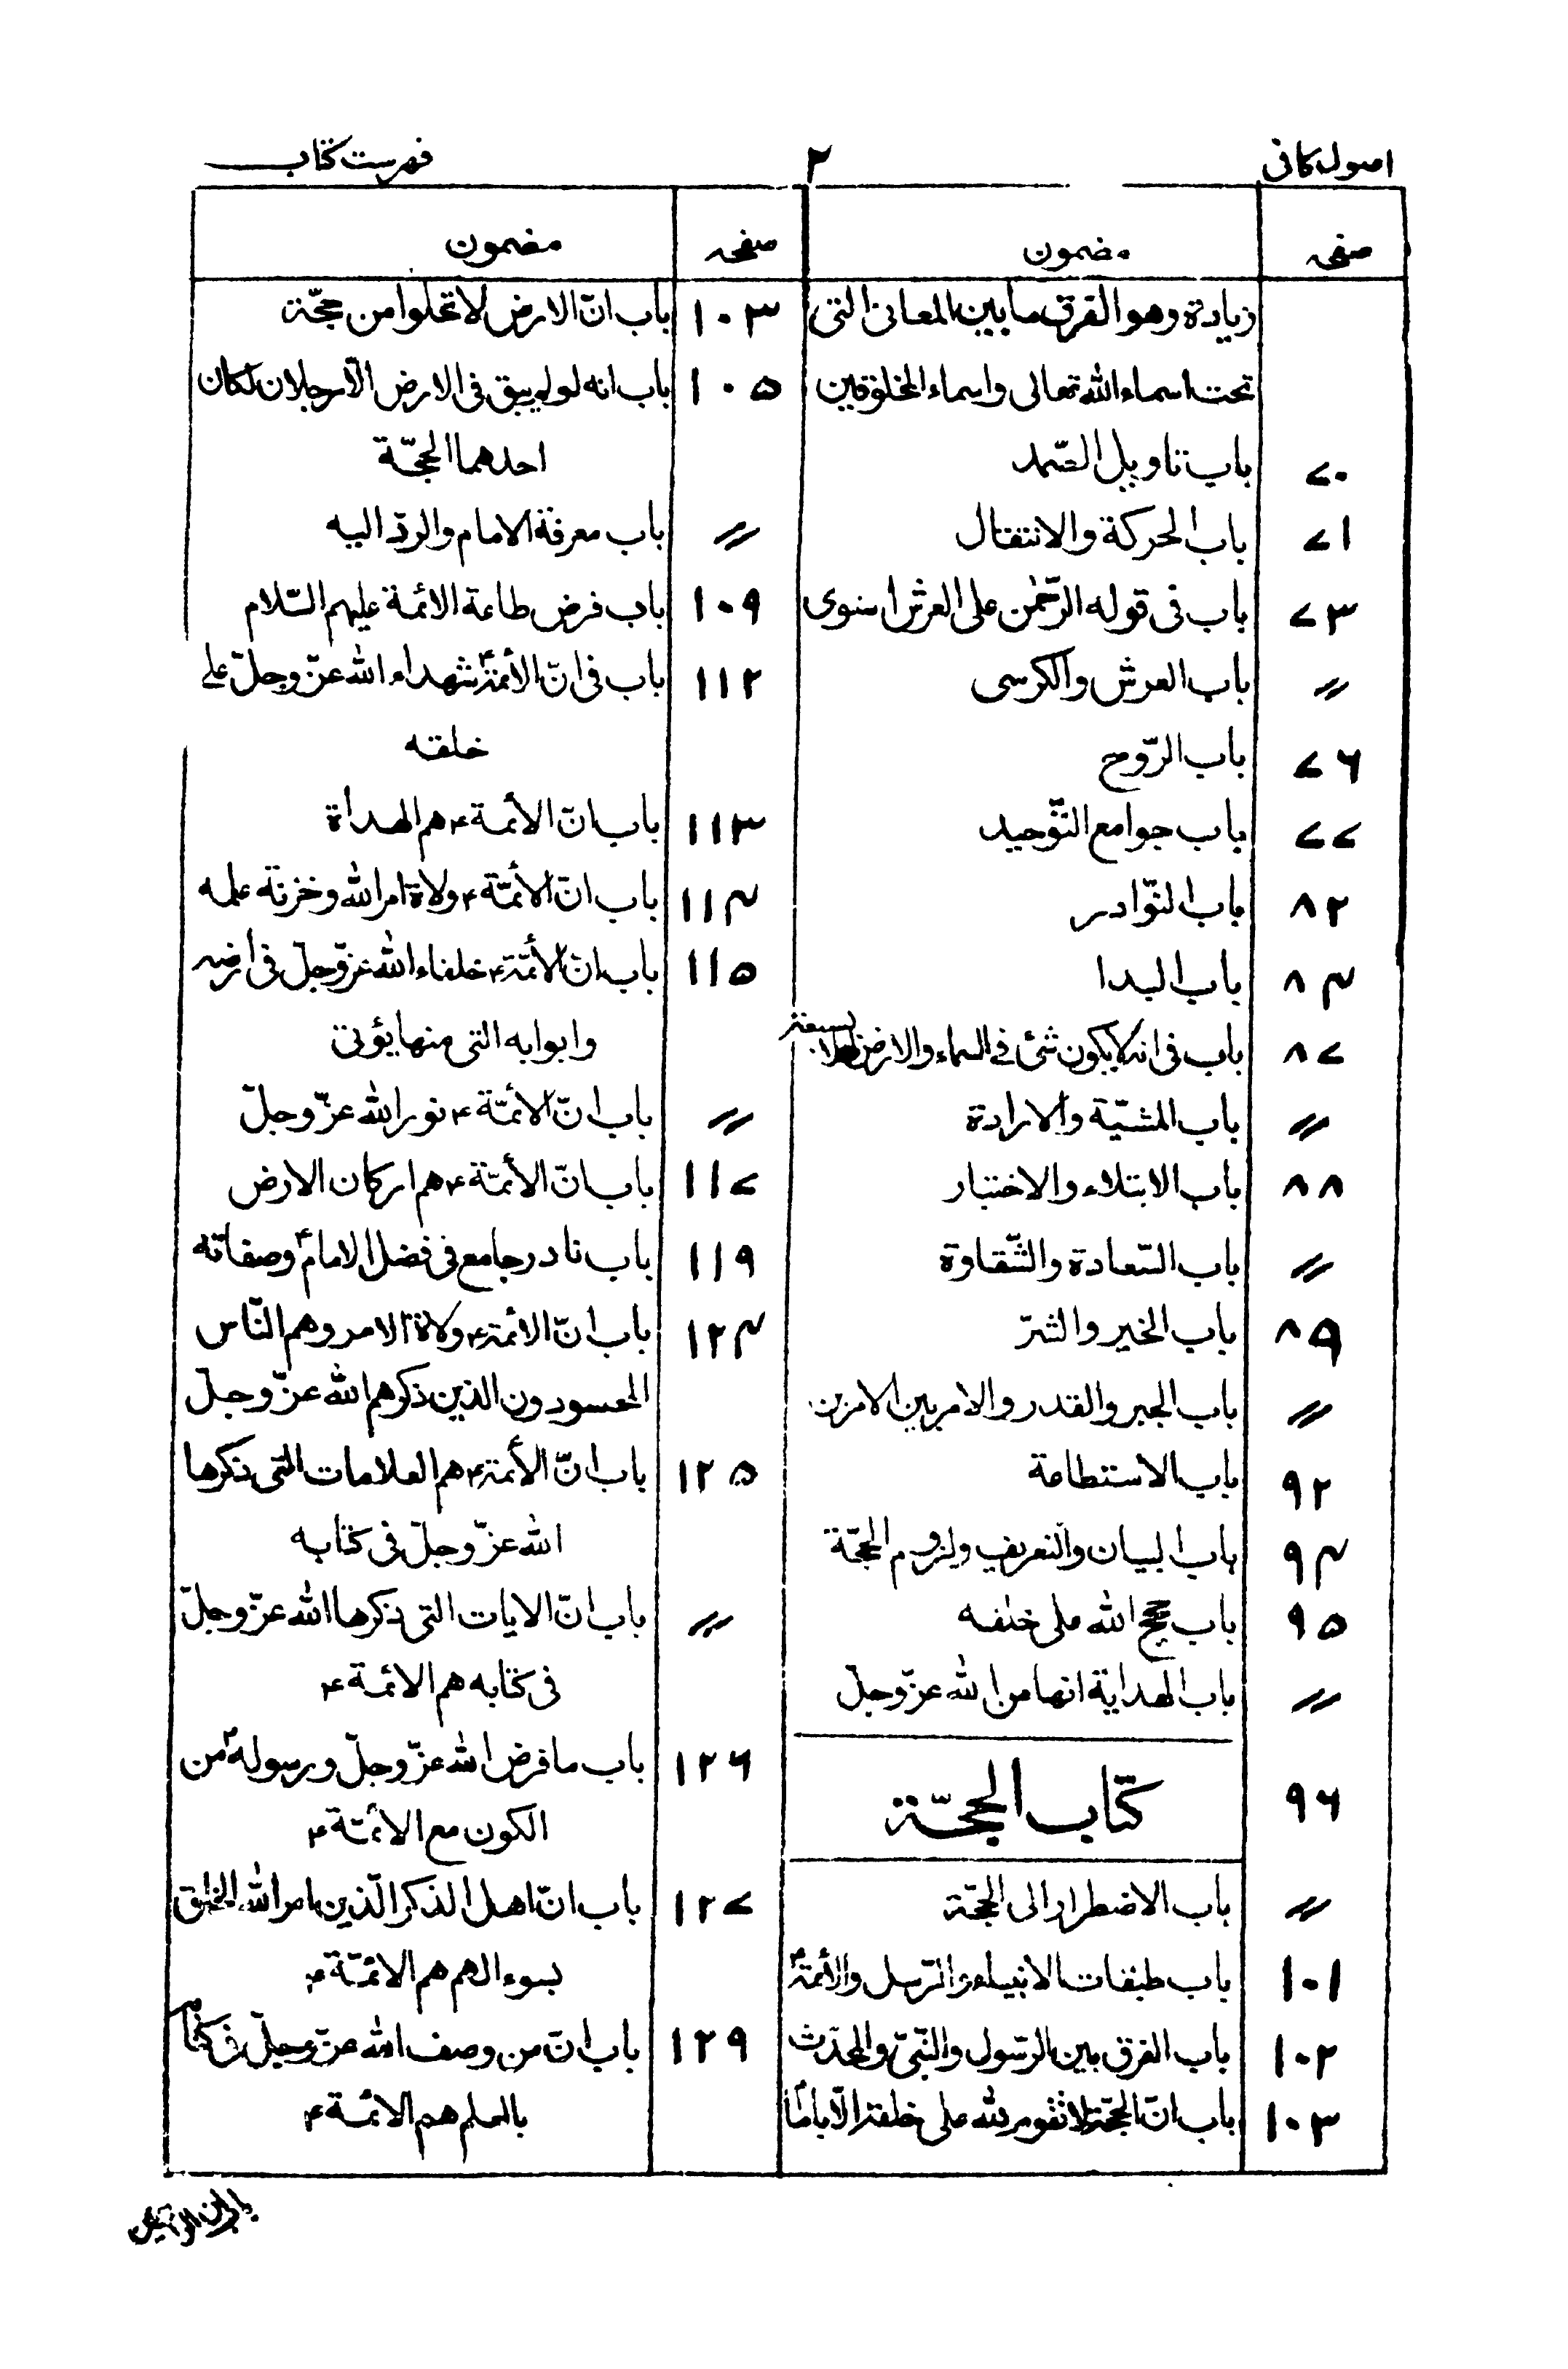 اصول کافی
۲
فهرست کتاب
صفحہ مضمون
زیادة وهو الفرق ما بین المعانی التی
تحت اسماء الله تعالی واسماء المخلوقین
۷۰ باب تاویل الصّمد
۷۱ باب الحرکة والانتقال
۷۳ باب فی قوله الرّحمٰن علی العرش استوی
〃 باب العرش والکرسی
۷۶ باب الرّوح
۷۷ باب جوامع التّوحید
۸۲ باب النّوادر
۸۴ باب البدا
۸۷ باب فی انه لا یکون شئ فی السماء والارض الا بسبعة
〃 باب المشیّة والارادة
۸۸ باب الابتلاء والاختبار
〃 باب السّعادة والشّقاوة
۸۹ باب الخیر والشرّ
〃 باب الجبر والقدر والامر بین الامرین
۹۲ باب الاستطاعة
۹۴ باب البیان والتعریف ولزوم الحجّة
۹۵ باب حجج الله علی خلقه
〃 باب الهدایة انها من الله عزّ وجلّ
۹۶ کتاب الحجّة
〃 باب الاضطرار الی الحجّة
۱۰۱ باب طبقات الانبیاء والرّسل والأئمة؏
۱۰۲ باب الفرق بین الرّسول والنّبیّ والمحدّث
۱۰۳ باب انّ الحجّة لا تقوم لله علی خلقه الّا بامام
صفحہ مضمون
۱۰۳ باب انّ الارض لا تخلوا من حجّة
۱۰۵ باب انه لو لم یبق فی الارض الّا رجلان لکان
احدهما الحجّة
〃 باب معرفة الامام والردّ الیه
۱۰۹ باب فرض طاعة الائمة علیهم السّلام
۱۱۲ باب فی انّ الأئمة؏ شهداء الله عزّ وجلّ علی
خلقه
۱۱۳ باب انّ الأئمة ؏ هم الهداة
۱۱۴ باب انّ الأئمّة ؏ ولاة امر الله وخزنة علمه
۱۱۵ باب انّ الأئمّة ؏ خلفاء الله عزّ وجلّ فی أرضه
وابوابه التی منها یؤتی
〃 باب انّ الأئمّة ؏ نور الله عزّ وجلّ
۱۱۷ باب انّ الأئمّة ؏ هم ارکان الارض
۱۱۹ باب نادر جامع فی فضل الامام؏ وصفاته
۱۲۴ باب انّ الائمة ؏ ولاة الامر وهم النّاس
المحسودون الذین ذکرهم الله عزّ وجلّ
۱۲۵ باب انّ الأئمة ؏ هم العلامات التی ذکرها
الله عزّ وجلّ فی کتابه
〃 باب انّ الایات التی ذکرها الله عزّ وجلّ
فی کتابه هم الائمة ؏
۱۲۶ باب ما فرض الله عزّ وجلّ ورسوله من
الکون مع الأئمّة ؏
۱۲۷ باب انّ اهل الذکر الّذین امر الله الخلق
بسوءالهم هم الائمّة ؏
۱۲۹ باب انّ من وصف الله عزّ وجلّ فی کتابه
بالعلم هم الائمّة ؏